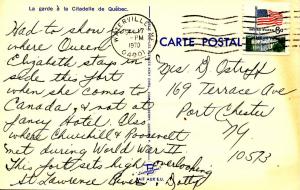 La garde à la Citadelle de Québec.
Had to show you
where Queen
Elizabeth stays in-
side this fort
when she comes to
Canada, & not at
fancy Hotel. Also
where Churchill & Roosevelt
met during World War II
This fort sits high overlooking
St Lawrence River. Dotty
PM
1970
CARTE POSTALE
Mrs D Ostroff
169 Terrace Ave
Port Chester
NY
10573